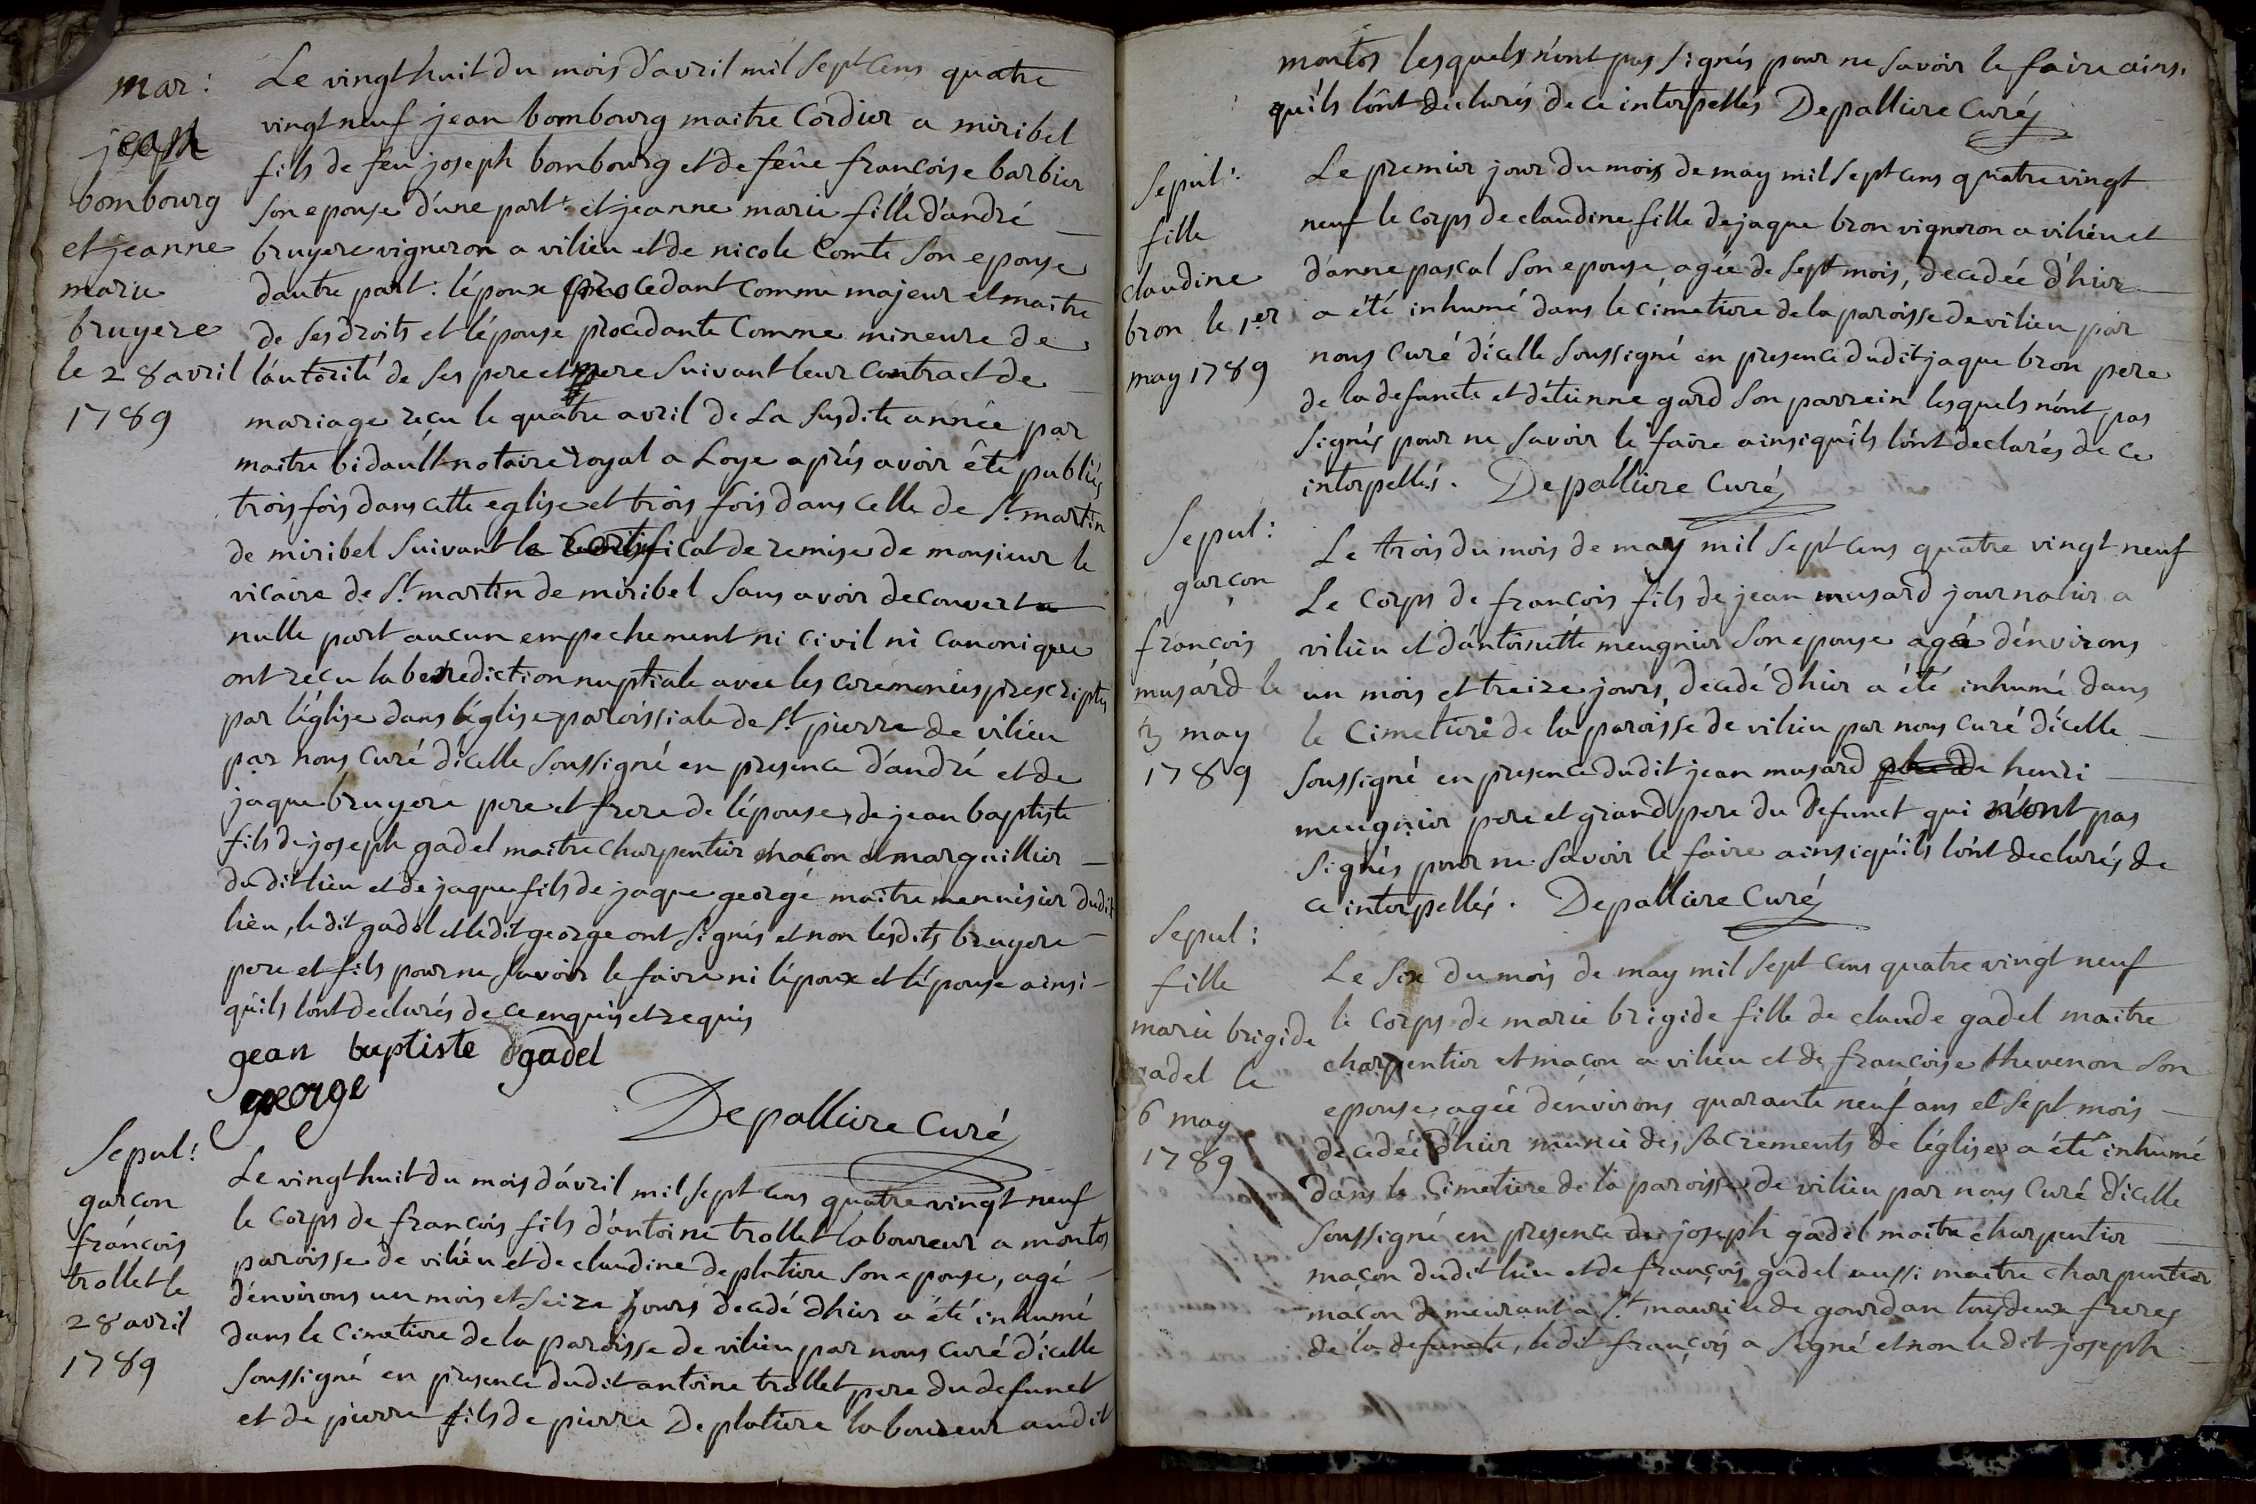 mar :
jean
bombourg
et jeanne
marie
bruyere
le 28 avril
1789
Le vingt huit du mois d'avril mil sept cens quatre
vingt neuf jean bombourg maitre Cordier a miribel
fils de feu joseph bombourg et de feüe francoise barbier
son epouse d'une part : et jeanne marie fille d'andré
bruyere vigneron a vilieu et de nicole Comte son epouse
dautre part : l'époux procedant comme majeur et maitre
de ses droits et l'épouse procedante Comme mineure de
l'autorité de ses pere et mere suivant leur Contract de
mariage reçu le quatre avril de La susdite année par
maitre bidault notaire royal a Loye aprés avoir été publiés
trois fois dans cette eglise et trois fois dans celle de St. martin
de miribel suivant le Certificat de remise de monsieur le
vicaire de St. martin de miribel sans avoir decouvert
nulle part aucun empechement ni civil ni canonique
ont reçu la benediction nuptiale avec les ceremonies prescriptes
par l'église dans l'église paroissiale de St. pierre de vilieu
par nous Curé d'icelle soussigné en presence d'andré et de
jaque bruyere pere et frere de l'épouse, de jean baptiste
fils de joseph gadel maitre charpentier maçon et marguillier
dudit lieu et de jaque fils de jaque george maitre menuisier dudit
lieu, le dit gadel et ledit george ont signés et non lesdits bruyere
pere et fils pour ne savoir le faire ni l'époux et l'épouse ainsi
qu'ils l'ont declarés de ce enquis et requis
gean baptiste gadel
george
Depalliere Curé
Sepul :
garcon
françois
trollet le
28 avril
1789
Le vingt huit du mois d'avril mil sept cens quatre vingt neuf
le Corps de françois fils d'antoine trollet laboureur a montos
paroisse de vilieu et de claudine deplatiere son epouse, agé
d'environs un mois et seize jours decedé d'hier a été inhumé
dans le Cimetiere de la paroisse de vilieu par nous Curé d'icelle
soussigné en presence dudit antoine trollet pere du defunct
et de pierre fils de pierre Deplatiere laboureur audit
montos lesquels n'ont pas signés pour ne savoir le faire ainsi
qu'ils l'ônt declarés de ce interpellés Depalliere Curé
Sepul :
fille
claudine
bron le 1er
may 1789
Le premier jour du mois de may mil sept cens quatre vingt
neuf le Corps de claudine fille de jaque bron vigneron a vilieu et
d'anne pascal son epouse, agée de sept mois, decedée d'hier
a été inhumé dans le cimetiere de la paroisse de vilieu par
nous Curé d'icelle soussigné en presence dudit jaque bron pere
de la defuncte et d'étienne gard son parrein lesquels n'ont pas
signés pour ne savoir le faire ainsi qu'ils l'ont declarés de ce
interpellés. Depalliere Curé
Sepul :
garçon
françois
musard le
3 may
1789
Le trois du mois de may mil sept cens quatre vingt neuf
Le Corps de françois fils de jean musard journalier a
vilieu et d'antoinette meugnier son epouse agé d'environs
un mois et treize jours, decedé d'hier a été inhumé dans
le Cimetiere de la paroisse de vilieu par nous Curé d'icelle
soussigné en presence dudit jean musard de henri
meugnier pere et grand pere du defunct qui n'ont pas
signés pour ne savoir le faire ainsi qu'ils l'ont declarés de
ce interpellés. Depalliere Curé
Sepul :
fille
marie brigide
gadel le
6 may
1789
Le six du mois de may mil sept cens quatre vingt neuf
le Corps de marie brigide fille de claude gadel maitre
charpentier et maçon a vilieu et de françoise thevenon son
epouse agée d'environs quarante neuf ans et sept mois
decedée d'hier munie des sacrements de l'église a été inhumé
dans le Cimetiere de la paroisse de vilieu par nous Curé d'icelle
soussigné en presence de joseph gadel maitre charpentier
maçon dudit lieu et de françois gadel aussi maitre charpentier
maçon demeurant a St. maurice de gourdan tous deux freres
de la defuncte, ledit françois a signé et non le dit joseph